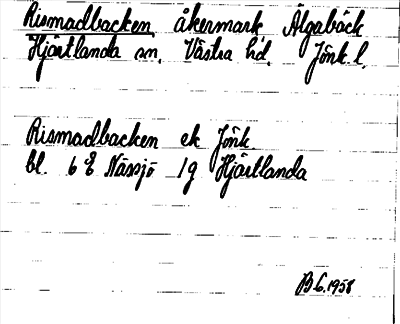 Rismadbacken, åkermark Älgabäck
Hjärtlanda sn. Västra hd. Jönk. l.
Rismadbacken ek Jönk.
bl. 6 E Nässjö 1g Hjärtlanda
B G. 1958